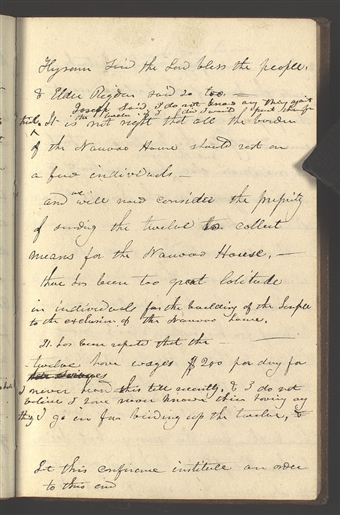 Hyrum said the Lord bless the people,
& Elder Rigdon said so too. —
Joseph said, I do not know any thing against
the twelve. If I did I would present them for
trial. It is not right that all the burden
of the Nauvoo House should rest on
a few individuals. —
and we will now consider the propriety
of sending the twelve to collect
means for the Nauvoo House. —
there has been too great latitude
in individuals for the building of the Temple
to the exclusion of the Nauvoo house.
It has been reported that the —
twelve have wages $200 per day for
I never heard this till recently, & I do not
believe I have never known their having any
thing I go in for binding up the twelve, &
Let this conference institute an order
to this end